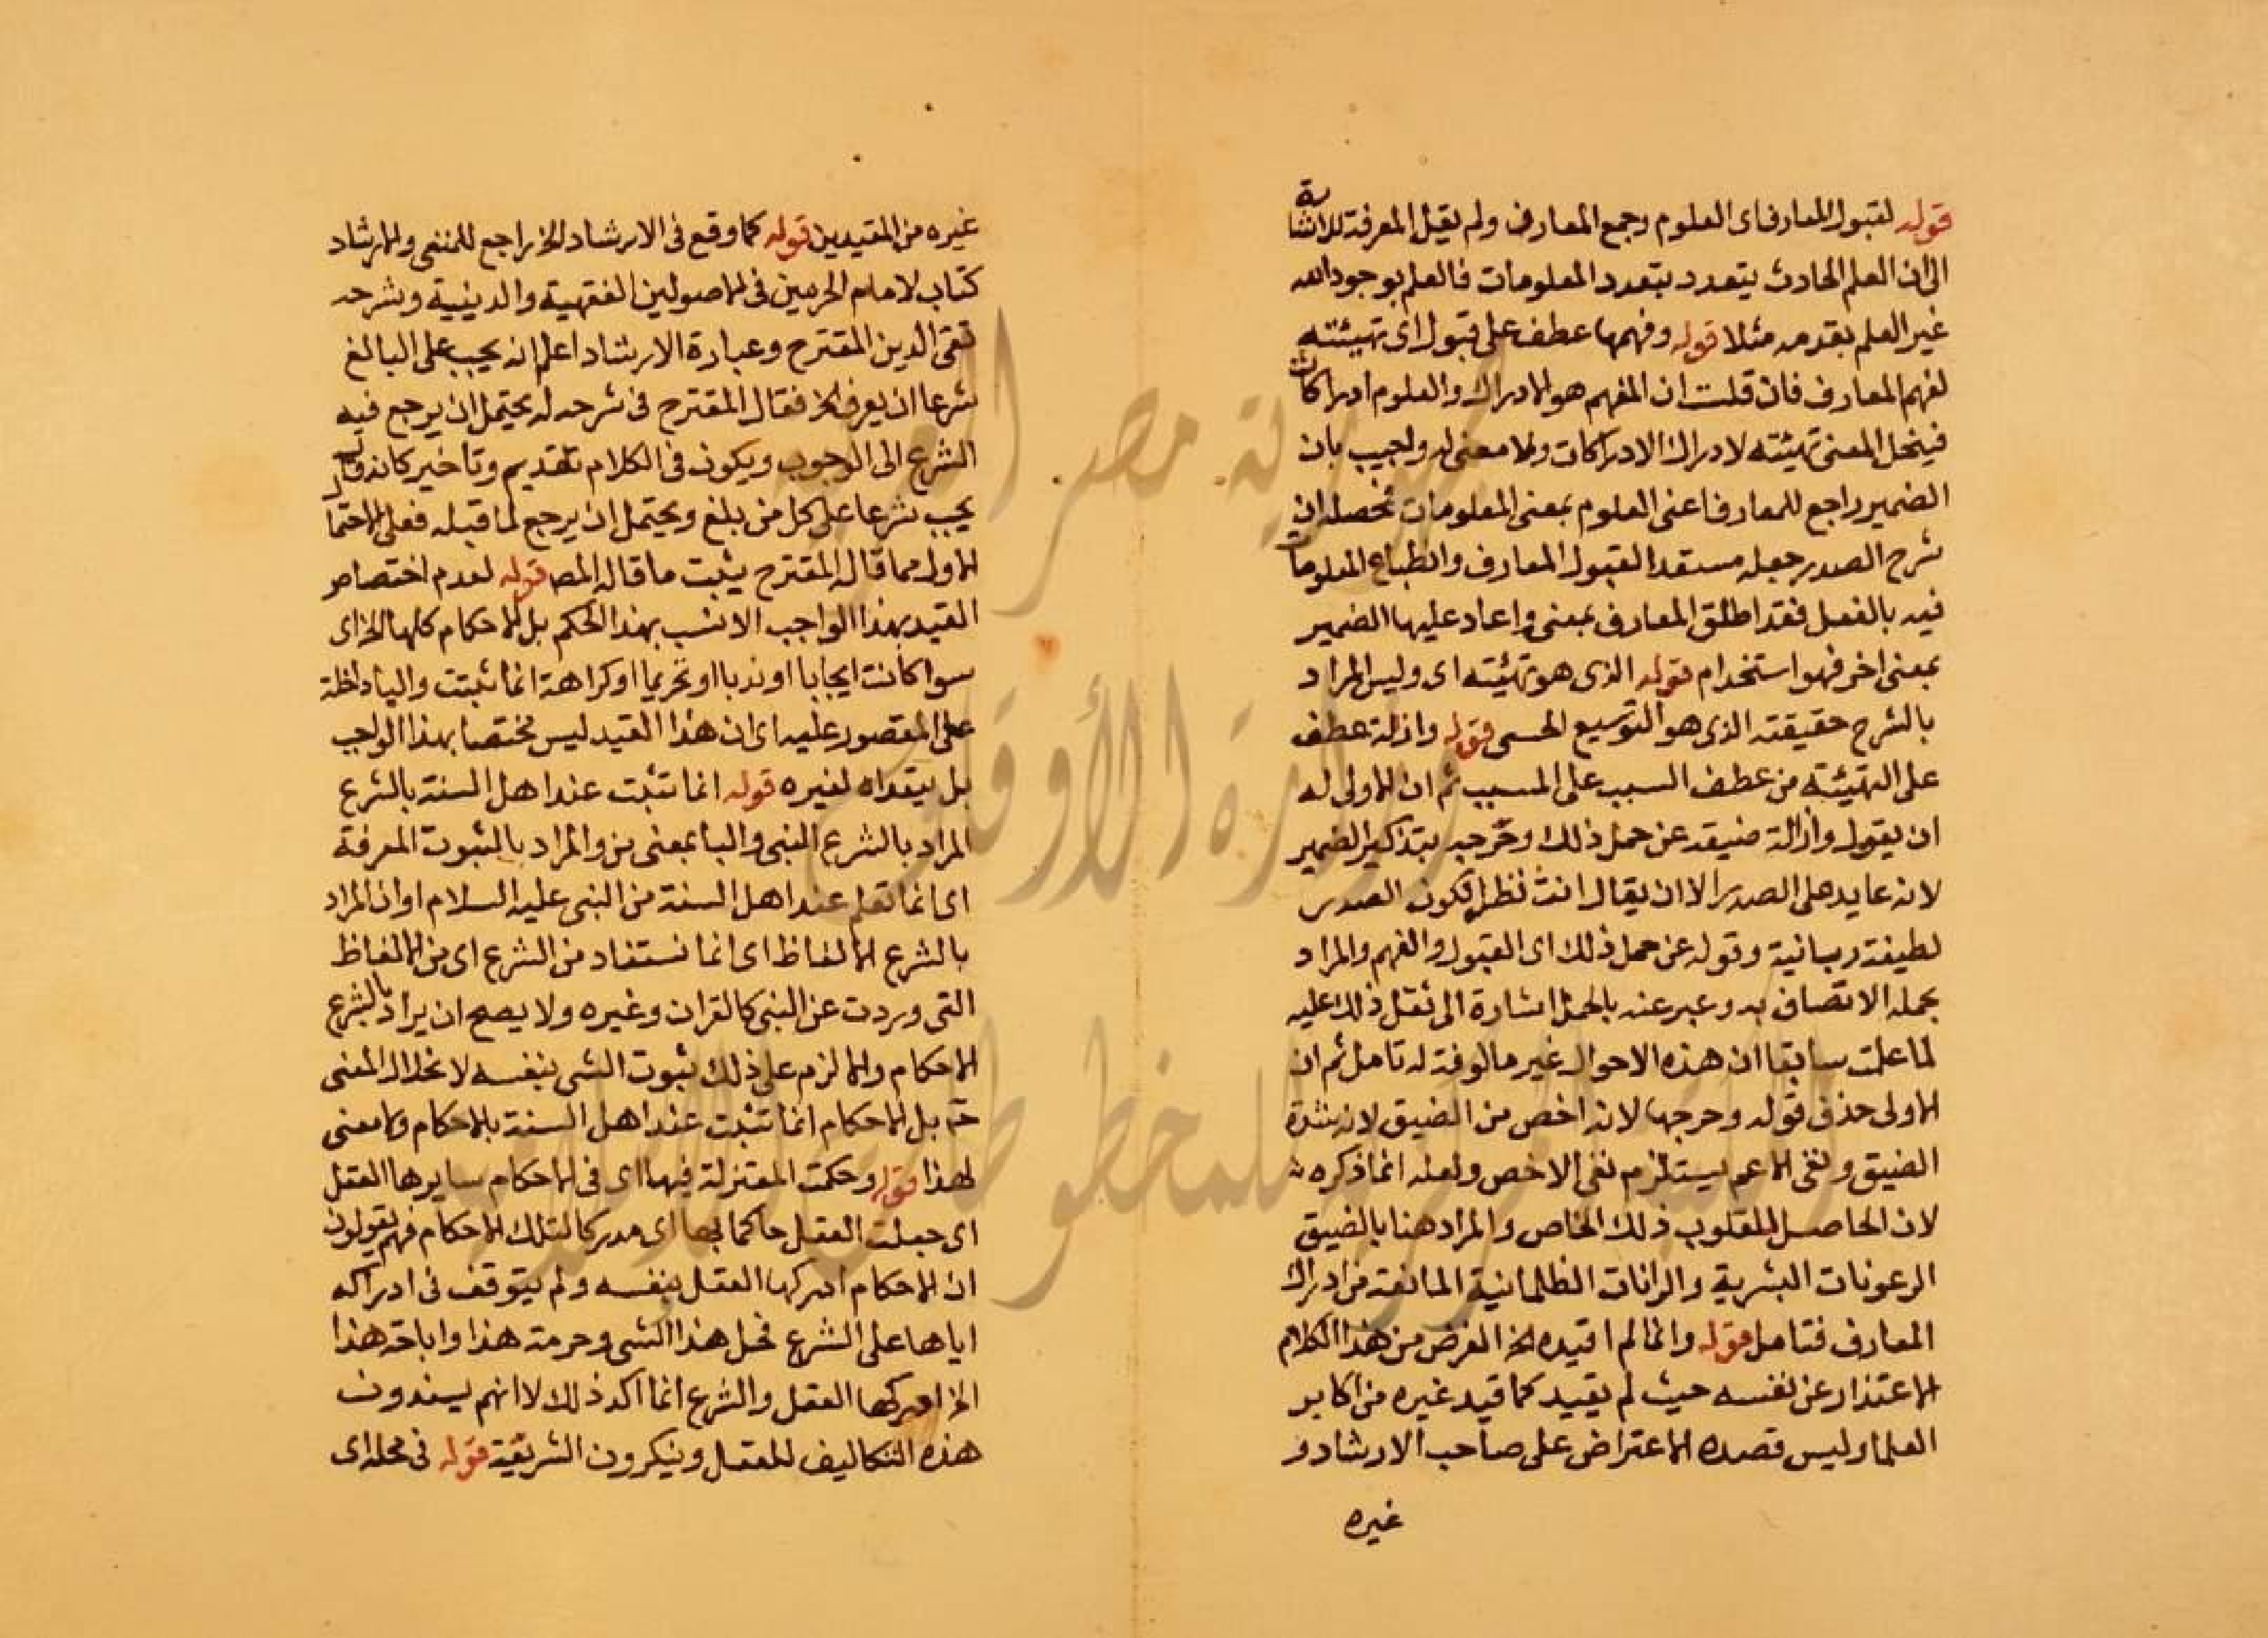 قوله لقبول المعارف اى العلوم وجمع المعارف ولم يقل المعرفة للاشارة
الى ان العلم الحادث يتعدد بتعدد المعلومات فالعلم بوجود الله
غير العلم بقدمه مثلا قوله وفهمها عطف على قبول اى تهيئته
لفهم المعارف فان قلت ان الفهم هو الادراك والعلوم ادراكات
فينحل المعنى تهيئته لادراك الادراكات ولا معنى له واجيب بان
الضمير راجع للمعارف اعنى العلوم بمعنى المعلومات محصله ان
شرح الصدر جعله مستعدا لقبول المعارف وانطباع المعلومات
فيه بالفعل فقد اطلق المعارف بمعنى واعاد عليها الضمير
بمعنى اخر فهو استخدام قوله الذى هو تهيئته اى وليس المراد
بالشرح حقيقته الذى هو التوسيع الحسى قوله وازالة عطف
على التهيئته من عطف السبب على المسبب ثم ان الاولى له
ان يقول وازالة ضيقه عن حمل ذلك وحرجه بتذكير الضمير
لانه عايد على الصدر الا ان يقال انث نظرا لكون الصدر
لطيفة ربانية وقوله عن حمل ذلك اى القبول والفهم والمراد
بحمله الاتصاف به وعبر عنه بالحمل اشارة الى ثقل ذلك عليه
لما علمت سابقا ان هذه الاحوال غير مالوفة له تامل ثم ان
الاولى حذف قوله وحرجها لانه اخص من الضيق لانه شدة
الضيق ونفى الاعم يستلزم نفى الاخص ولعله انما ذكره
لان الحاصل للقلوب ذلك الخاص والمراد هنا بالضيق
الرعونات البشرية والرانات الظلمانية المانعة من ادراك
المعارف فتامل قوله وانما لم اقيده الخ الغرض من هذا الكلام
الاعتذار عن نفسه حيث لم يقيد كما قيد غيره من اكابر
العلما وليس قصده الاعتراض على صاحب الارشاد و
غيره
غيره من المقيدين قوله كما وقع فى الارشاد الخ راجع للمنفى والارشاد
كتاب لامام الحرمين فى الاصولين الفقهية والدينية وشرحه
تقى الدين المقترح وعبارة الارشاد اعلم انه يجب على البالغ
شرعا ان يعرف الخ فقال المقترح فى شرحه له يحتمل ان يرجع فيه
الشرع الى الوجوب ويكون فى الكلام تقديم وتاخير كانه قال
يجب شرعا على كل من بلغ ويحتمل ان يرجع لما قبله فعلى الاحتمال
الاول مما قاله المقترح يثبت ما قاله المصـ قوله لعدم اختصاص
القيد بهذا الواجب الانسب بهذا الحكم بل الاحكام كلها الخ اى
سوا كانت ايجابا او ندبا او تحريما او كراهة انما تثبت والبا داخلة
على المقصور عليه اى ان هذا القيد ليس مختصا بهذا الواجب
بل يتعداه لغيره قوله انما تثبت عند اهل السنة بالشرع
المراد بالشرع النبى والبا بمعنى من والمراد بالثبوت المعرفة
اى انما تعلم عند اهل السنة من النبى عليه السلام او ان المراد
بالشرع الالفاظ اى انما تستفاد من الشرع اى من الالفاظ
التى وردت عن النبى كالقران وغيره ولا يصح ان يراد بالشرع
الاحكام والا لزم على ذلك ثبوت الشى بنفسه لانحلال المعنى
ح بل الاحكام انما تثبت عند اهل السنة بالاحكام ولا معنى
لهذا قوله وحكمت المعتزلة فيها اى فى الاحكام سايرها العقل
اى جعلت العقل حاكما بها اى مدركا لتلك الاحكام فهم يقولون
ان الاحكام ادركها العقل بنفسه ولم يتوقف فى ادراكه
اياها على الشرع فحل هذا الشى وحرمة هذا واباحة هذا
الخ ادركها العقل والشرع انما اكد ذلك لا انهم يسندون
هذه التكاليف للعقل وينكرون الشريعة قوله فى محله اى